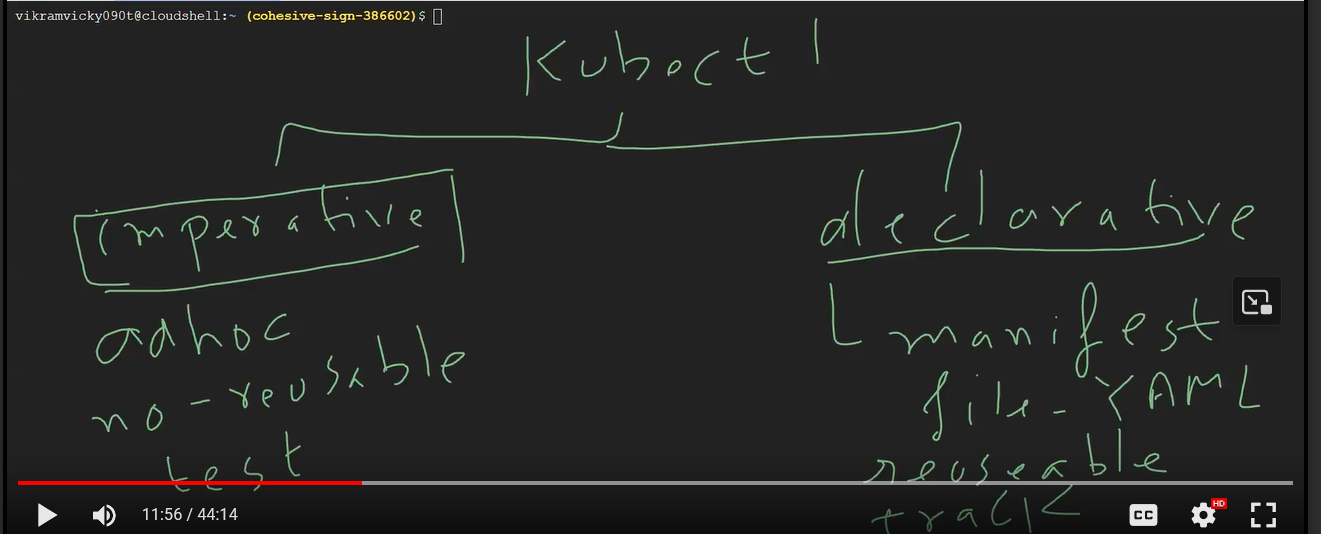 vikramvicky090t@cloudshell:~ (cohesive-sign-386602)$
Kubectl
imperative
declarative
adhoc
no-reusable
test
manifest
file-YAML
reuseable
track
11:56 / 44:14
CC
HD